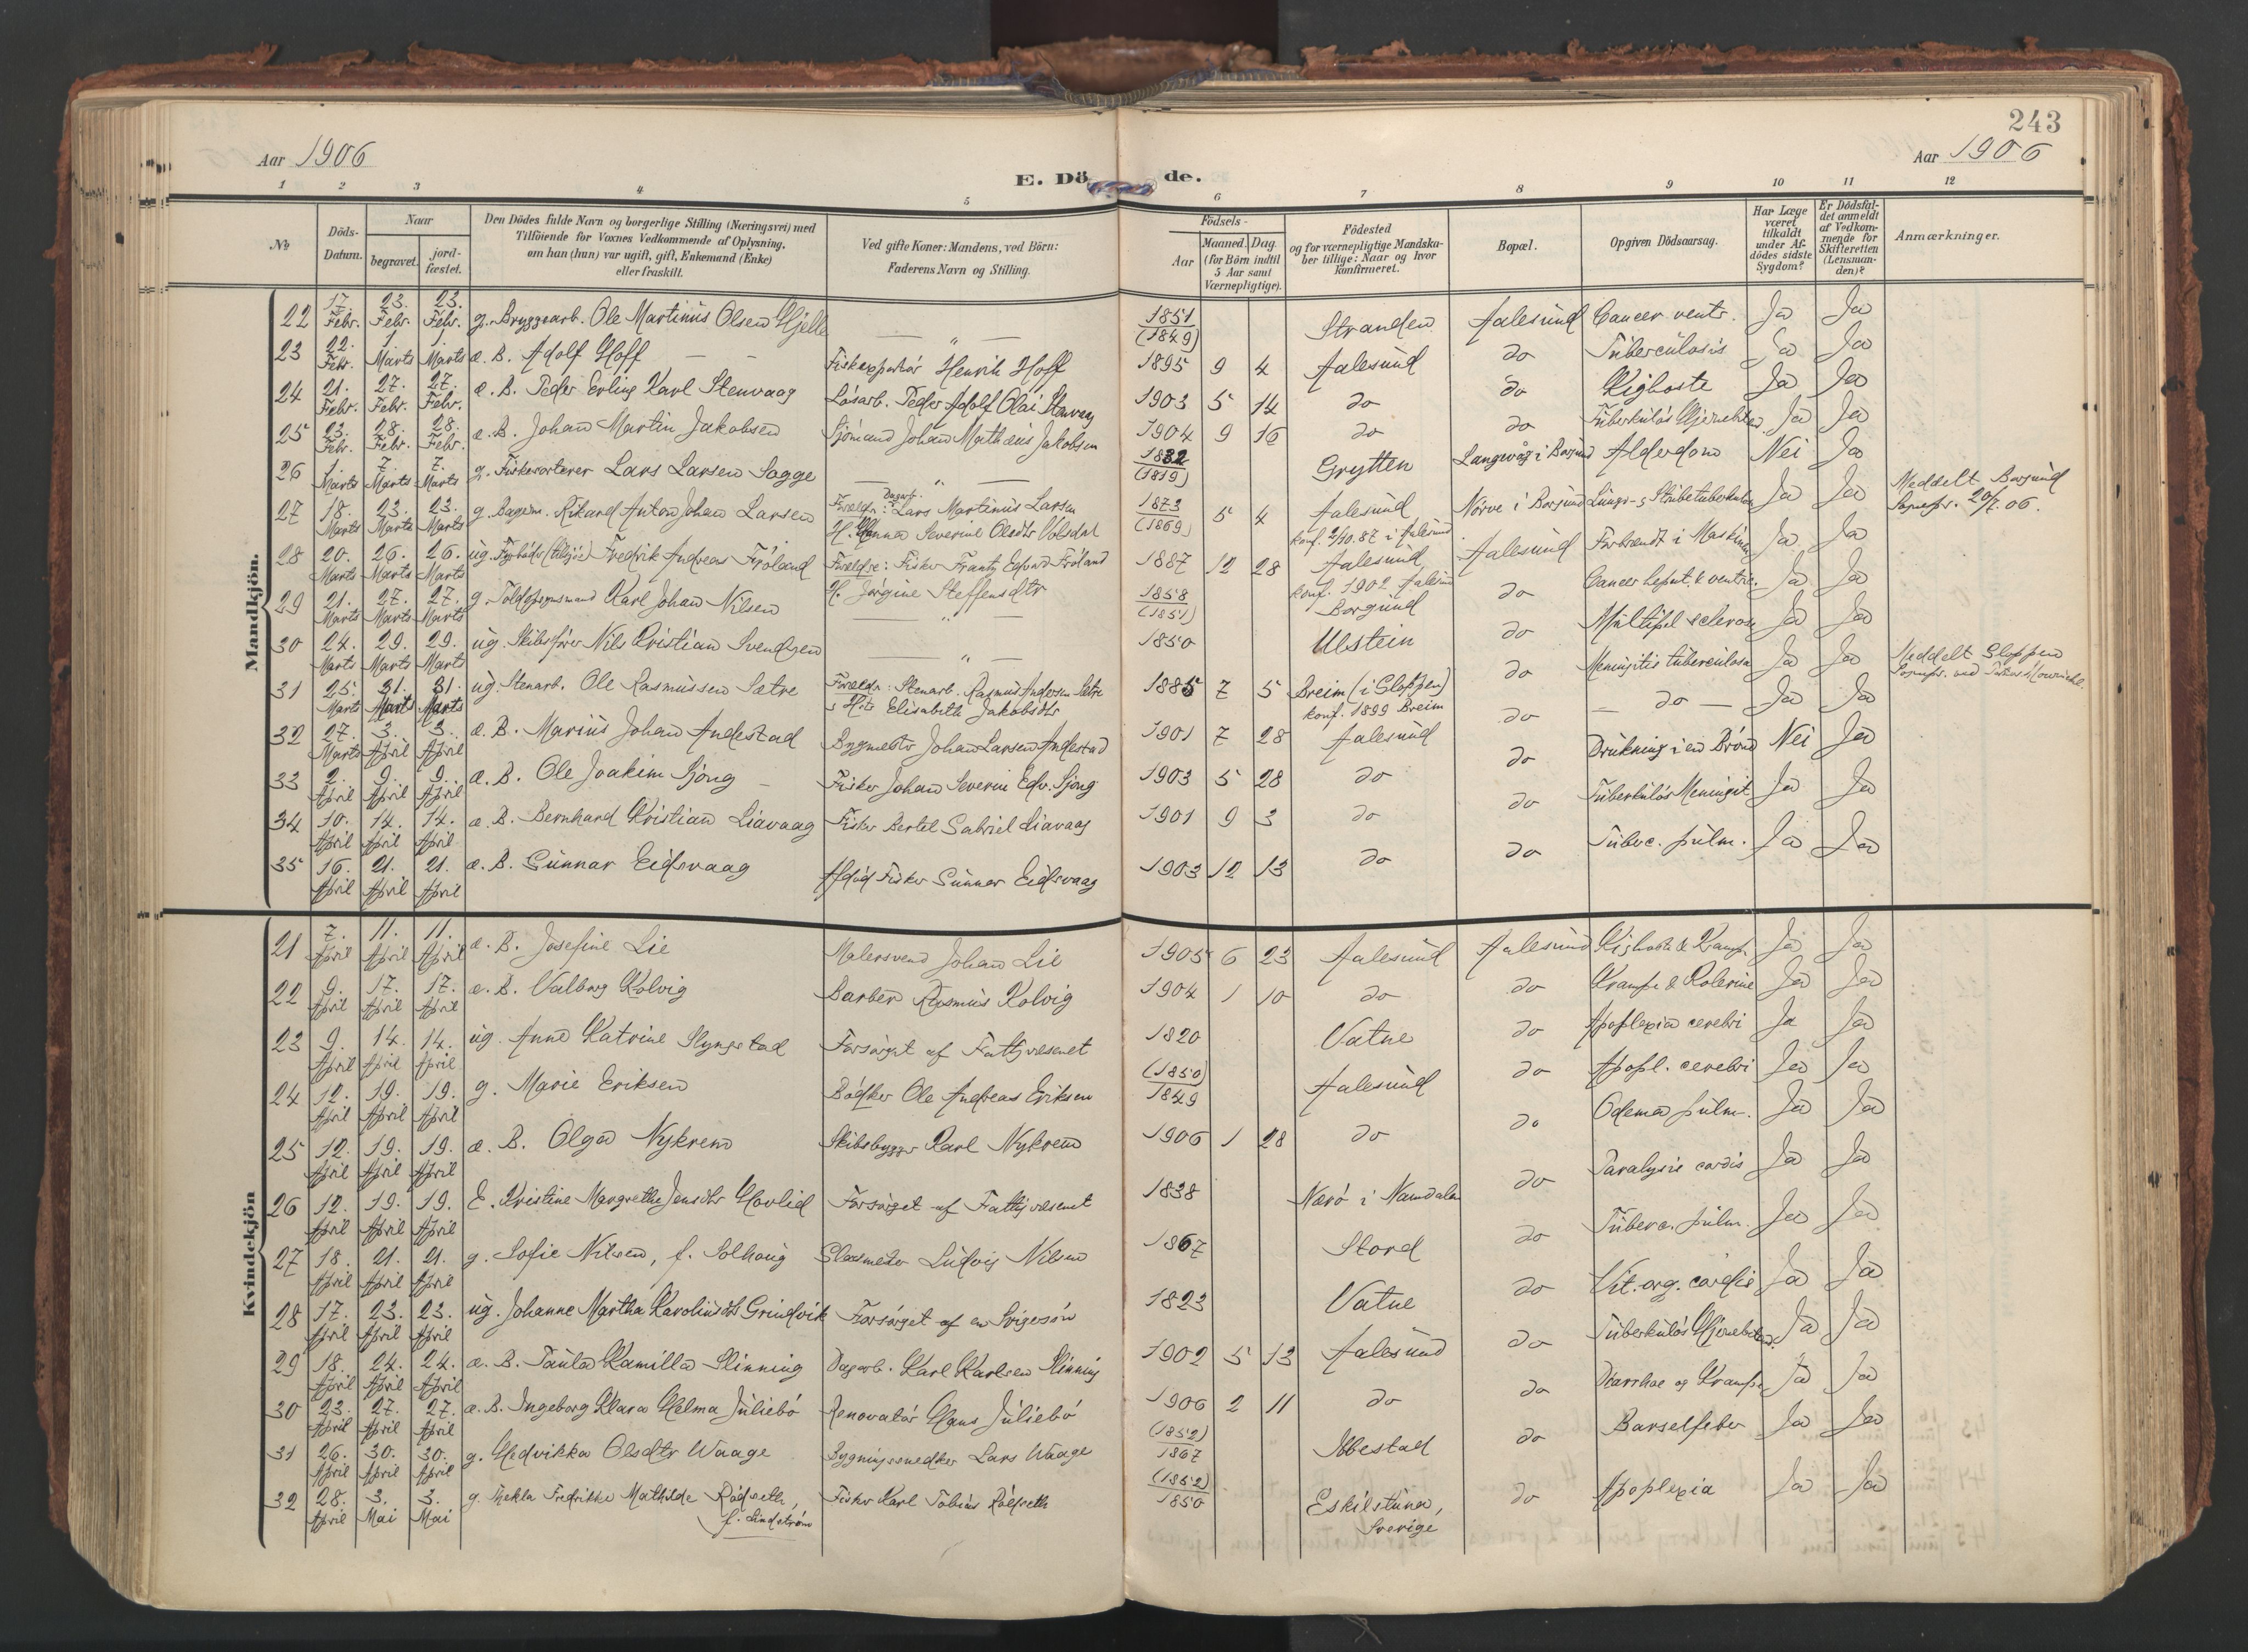 243
Aar 1906
Aar 1906
E. Dö de.
1 2 3 4 5 6 7 8 9 10 11 12
No
Döds-Datum.
Naar
begravet.
jord-fæstet.
Den Dödes fulde Navn og borgerlige Stilling (Næringsvei) med
Tilföiende for Voxnes Vedkommende af Oplysning,
om han (hun) var ugift, gift, Enkemand (Enke)
eller fraskilt.
Ved gifte Koner: Mandens, ved Börn:
Faderens Navn og Stilling.
Födsels-
Aar
Maaned. Dag.
(for Börn indtil
5 Aar samt
Værnepligtige).
Födested
og for værnepligtige Mandska-
ber tillige: Naar og hvor
konfirmeret.
Bopæl.
Opgiven Dödsaarsag.
Har Læge
været
tilkaldt
under Af-
dödes sidste
Sygdom?
Er Dödsfal-
det anmeldt
af Vedkom-
mende for
Skifteretten
(Lensman-
den)?
Anmærkninger.
Mandkjön.
22 17. Febr. 23. Febr. 23. Febr. g. Bryggearb. Ole Martinus Olsen Hjelle — " — 1851 (1849) Stranden Aalesund Cancer ventr. Ja Ja
23 22. Febr. 1. Marts 1. Marts æ. B. Adolf Hoff — — Fiskexportör Henrik Hoff 1895 9 4 Aalesund do Tuberculosis Ja Ja
24 21. Febr. 27. Febr. 27. Febr. æ. B. Peder Erling Karl Stenvaag Lösarb. Peder Adolf Olai Stenvaag 1903 5 14 do do Kighoste Ja Ja
25 23. Febr. 28. Febr. 28. Febr. æ. B. Johan Martin Jakobsen Sjömand Johan Mathæus Jakobsen 1904 9 16 do do Tuberkulös Hjernebet. Ja Ja
26 1. Marts 7. Marts 7. Marts g. Fiskesorterer Lars Larsen Sagge — " — 1832 (1819) Grytten Langevåg i Borgund Alderdom Nei Ja
27 18. Marts 23. Marts 23. Marts g. Bagerm. Rikard Anton Johan Larsen Forældr: Dagarb. Lars Martinus Larsen 1873 (1869) 5 4 Aalesund Nørve i Borgund Lunge- & Strubetuberkulose Ja Ja Meddelt Borgund
H. Hanna Severine Olsdtr Volsdal konf. 2/10.87 i Aalesund Sognepr. 20/7.06.
28 20. Marts 26. Marts 26. Marts ug. Fyrböder (tilsjös) Fredrik Andreas Fröland Forældre: Fisker Frantz Edvard Fröland 1887 12 28 Aalesund Aalesund Forbrændt i Maskinen Ja Ja
H. Jørgine Steffensdtr konf. 1902 Aalesund
29 21. Marts 27. Marts 27. Marts g. Toldopsynsmand Karl Johan Nilsen — " — 1858 (1851) Borgund do Cancer hepat. & ventric. Ja Ja
30 24. Marts 29. Marts 29. Marts ug. Skibsförer Nils Kristian Svendsen — " — 1850 Utstein do Multipel sclerose Ja Ja
31 25. Marts 31. Marts 31. Marts ug. Stenarb. Ole Rasmussen Sætre Forældr: Stenarb. Rasmus Andersen Sætre 1885 7 5 Breim (i Gloppen) do Meningitis tuberculosa Ja Ja Meddelt Gloppen
& H. Elisabeth Jakobsdtr konf. 1899 Breim
32 27. Marts 3. April 3. April æ. B. Marius Johan Andestad Bygmester Johan Larsen Andestad 1901 7 28 Aalesund do — do — Ja Ja
33 2. April 9. April 9. April æ. B. Ole Joakim Sjong — Fisker Johan Severin Edv. Sjong 1903 5 28 do do Drukning i en Brönd Nei Ja
34 10. April 14. April 14. April æ. B. Bernhard Kristian Liavaag Fisker Bertel Gabriel Liavaag 1901 9 3 do do Tuberkulös Meningit Ja Ja
35 16. April 21. April 21. April æ. B. Gunnar Eidsvaag Afdöd Fisker Gunnar Eidsvaag 1903 12 13 do do Tuberc. pulm. Ja Ja
Kvindekjön
21 7. April 11. April 11. April æ. B. Josefine Lie Malersvend Johan Lie 1905 6 23 Aalesund Aalesund Kighoste & Krampe Ja Ja
22 9. April 17. April 17. April æ. B. Valborg Kolvig Barber Rasmus Kolvig 1904 1 10 do do Krampe & Kolerine Ja Ja
23 9. April 14. April 14. April ug. Anne Katrine Slyngstad Forsörget af Fattigvesenet 1820 Vatne do Apoplexia cerebri Ja Ja
24 12. April 19. April 19. April g. Marie Eriksen Bödker Ole Andreas Eriksen (1850) 1849 Aalesund do Apopl. cerebri Ja Ja
25 12. April 19. April 19. April æ. B. Olga Nykrem Skibsbygger Karl Nykrem 1906 1 28 do do Ödema pulm. Ja Ja
26 12. April 19. April 19. April E. Kristine Margrethe Jensdtr Hovlid Forsörget af Fattigvæsenet 1838 Nærö i Namdalen do Paralysis cordis Ja Ja
27 18. April 21. April 21. April g. Sofie Nilsen, f. Solhaug Glasmester Ludvig Nilsen 1867 Stord do Tuberc. pulm. Ja Ja
28 17. April 23. April 23. April ug. Johanne Martha Karoliusdtr Grindvik Forsörget af en Svigersön 1823 Vatne do Vit. org. cordis Ja Ja
29 18. April 24. April 24. April æ. B. Paula Kamilla Slinning Dagarb. Karl Karlsen Slinning 1902 5 13 Aalesund do Tuberkulös Hjernebetænd. Ja Ja
30 23. April 27. April 27. April æ. B. Ingeborg Klara Helma Juliebö Renovatör Hans Juliebö 1906 2 11 do do Diarrhoe og Krampe Ja Ja
31 26. April 30. April 30. April g. Hedvikka Olsdtr Waage Bygningssnedker Lars Waage (1852) 1867 Ibbestad do Barselfeber Ja Ja
32 28. April 3. Mai 3. Mai g. Thekla Fredrikke Mathilde Rödseth, Fisker Karl Tobias Rödseth (1852) 1850 Eskilstuna, do Apoplexia Ja Ja
f. Lindström Sverige